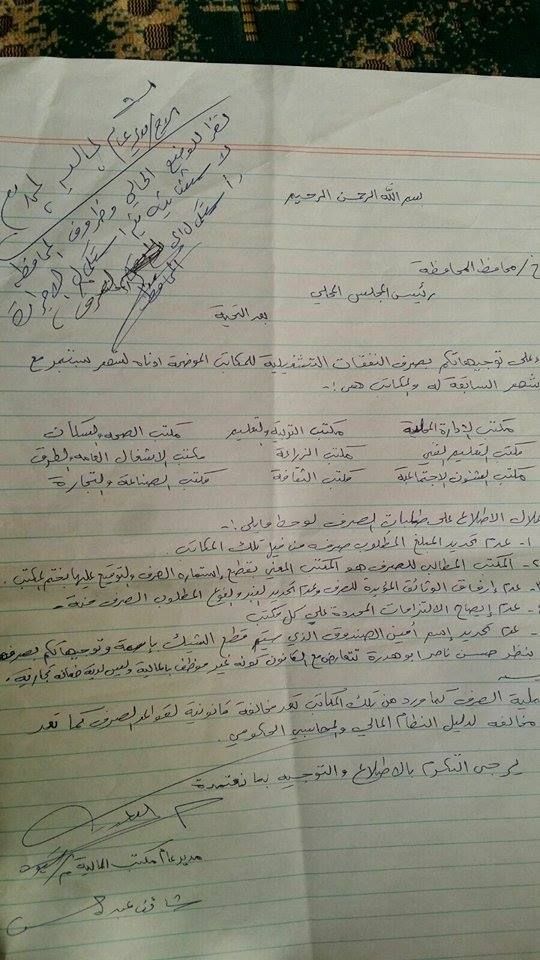 الأخ/ مدير عام المالية المحترم
نظرا للوضع الحالي وظروف المحافظة
الاستثنائية يتم استكمال الاجراءات
الصرف
المحافظ
بسم الله الرحمن الرحيم
خ/ محافظ المحافظة
رئيس المجلس المحلي
بعد التحية
وعلى توجيهاتكم بصرف النفقات التشغيلية للمكاتب الموضحة ادناه لشهر سبتمبر مع
لشهر السابقة له والمكاتب هي:-
مكتب الإدارة المحلية مكتب التربية والتعليم مكتب الصحة والسكان
مكتب التعليم الفني مكتب الزراعة مكتب الاشغال العامه والطرق
مكتب الشئون الاجتماعية مكتب الثقافة مكتب الصناعة والتجارة
خلال الاطلاع على طلبات الصرف لوحظ مايلي:-
١- عدم تحديد المبلغ المطلوب صرفه من قبل تلك المكاتب.
٢- المكتب المطالب للصرف هو المكتب المعني بقطع إستمارة الصرف والتوقيع عليها بختم المكتب.
عدم إرفاق الوثائق المؤيدة للصرف وعدم تحديد البند والنوع المطلوب الصرف منة -
عدم إيضاح الالتزامات المحددة على كل مكتب
عدم تحديد إسم أمين الصندوق الذي سيتم قطع الشيك بإسمة وتوجيهاتكم بصرفها
بنظر حسن ناصر ابوهدرة تتعارض مع القانون كونه غير موظف بالمالية وليس لدية ضمانه تجارية.
عملية الصرف كما ورد من تلك المكاتب تعد مخالفة قانونية لقواعد الصرف كما تعد
مخالفه لدليل النظام المالي والمحاسبي الحكومي.
يرجى التكرم بالاطلاع والتوجيه بما نعتمدة
مدير عام مكتب المالية م/